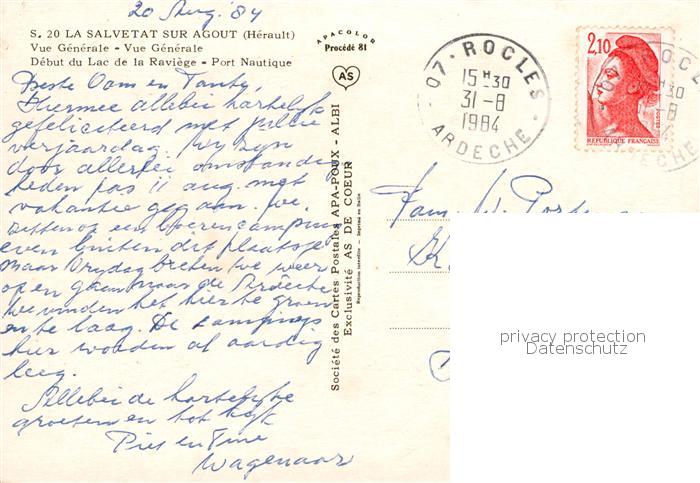 20 Aug. '84
S. 20 LA SALVETAT SUR AGOUT (Hérault)
Vue Générale - Vue Générale
Début du Lac de la Raviège - Port Nautique
Beste Oom en Tante,
Hiermee allebei hartelijk
gefeliciteerd met jullie
verjaardag. Wij zijn
door allerlei omstandig
heden pas 11 aug. met
vakantie gegaan. We
zitten op een boerencamping
even buiten dit plaatsje
maar vrijdag breken we weer
op en gaan naar de Ardèche
we vinden het hier te groen
en te laag. De campings
hier worden al aardig
leeg.
Allebei de hartelijke
groeten en tot kijk
Piet en Tine
Wagenaar
APACOLOR
Procédé 81
AS
Société des Cartes Postales APA-POUX - ALBI
Exclusivité AS DE COEUR
Reproduction interdite - Imprimé en Italie
07 - ROCLES
15 H 30
31-8
1984
ARDECHE
2,10
REPUBLIQUE FRANÇAISE
OCLE
H 30
8
Fam. W.
privacy protection
Datenschutz